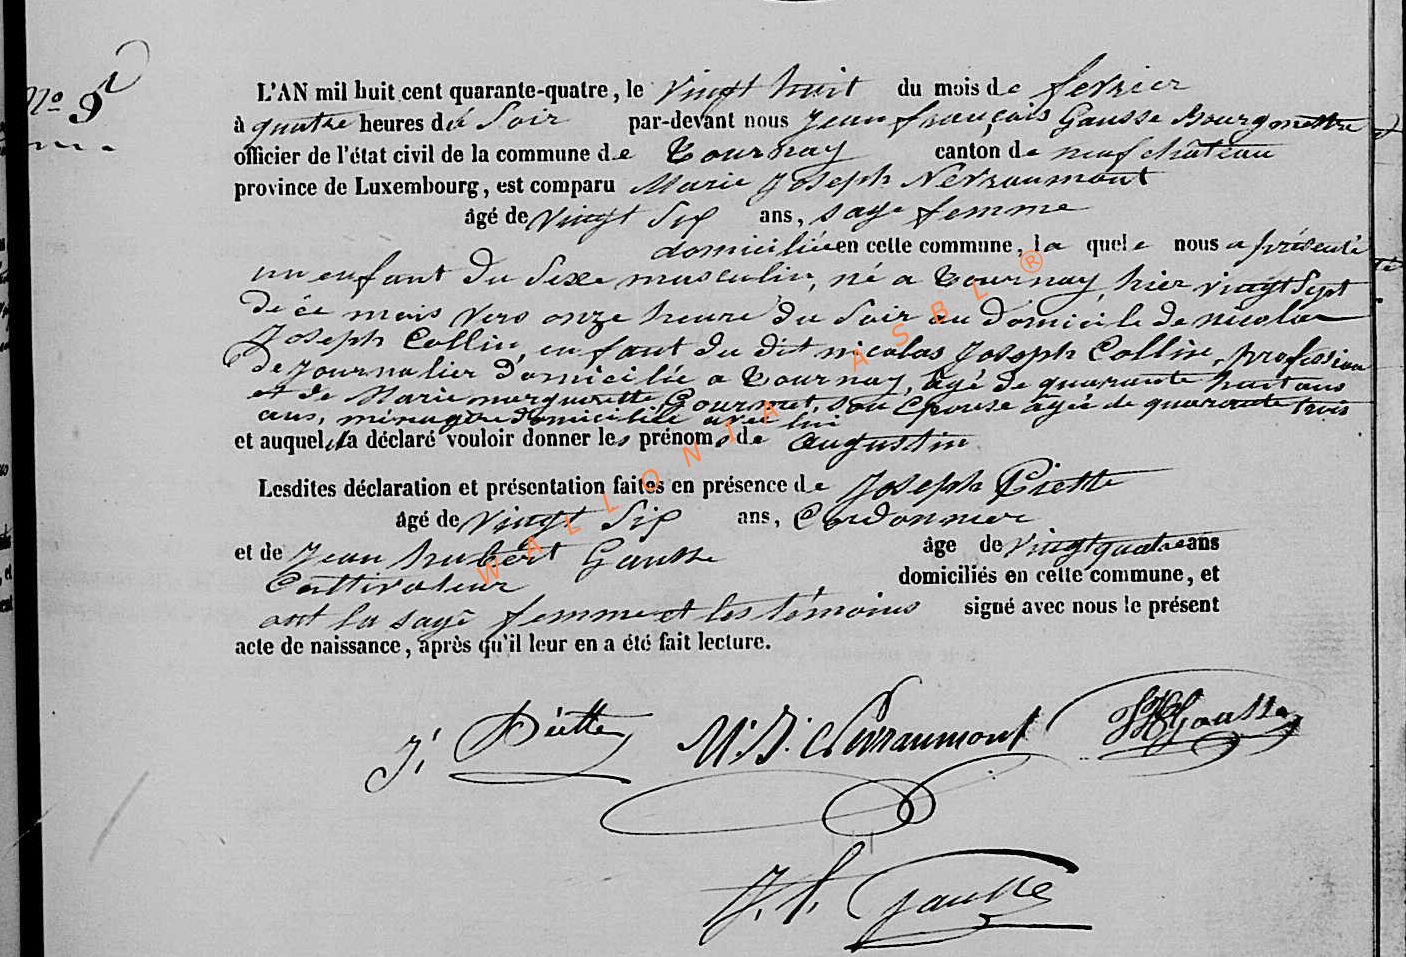 No 9
L'AN mil huit cent quarante-quatre, le vingt huit du mois de fevrier
à quatre heures du Soir par-devant nous Jean françois Gausse Bourgmettre
officier de l'état civil de la commune de Tournay canton de neufchâteau
province de Luxembourg, est comparu Marie Joseph Nevraumont
âgé de vingt Six ans, sage femme
domiciliée en cette commune, la quelle nous a présenté
un enfant du Sexe masculin, né a Tournay, hier vingt Sept
de ce mois vers onze heure du Soir au domicile de nicolas
Joseph Collin, enfant du dit nicolas Joseph Collin, profession
de Journalier domicilié a Tournay, âgé de quarante huit ans
et de Marie marguerite Gourmet, son Epouse agée de quarante trois
ans, ménagère domiciliée avec lui
et auquel, il a déclaré vouloir donner les prénoms de augustin
Lesdites déclaration et présentation faites en présence de Joseph Piette
âgé de vingt Six ans, Cordonnier
et de Jean hubert Gausse âge de vingt quatre ans
Cultivateur domiciliés en cette commune, et
ont la sage femme et les témoins signé avec nous le présent
acte de naissance, après qu'il leur en a été fait lecture.
J. Piette M. J. Nevraumont JH Gausse
J. f. Gausse
WALLONIA ASBL ®